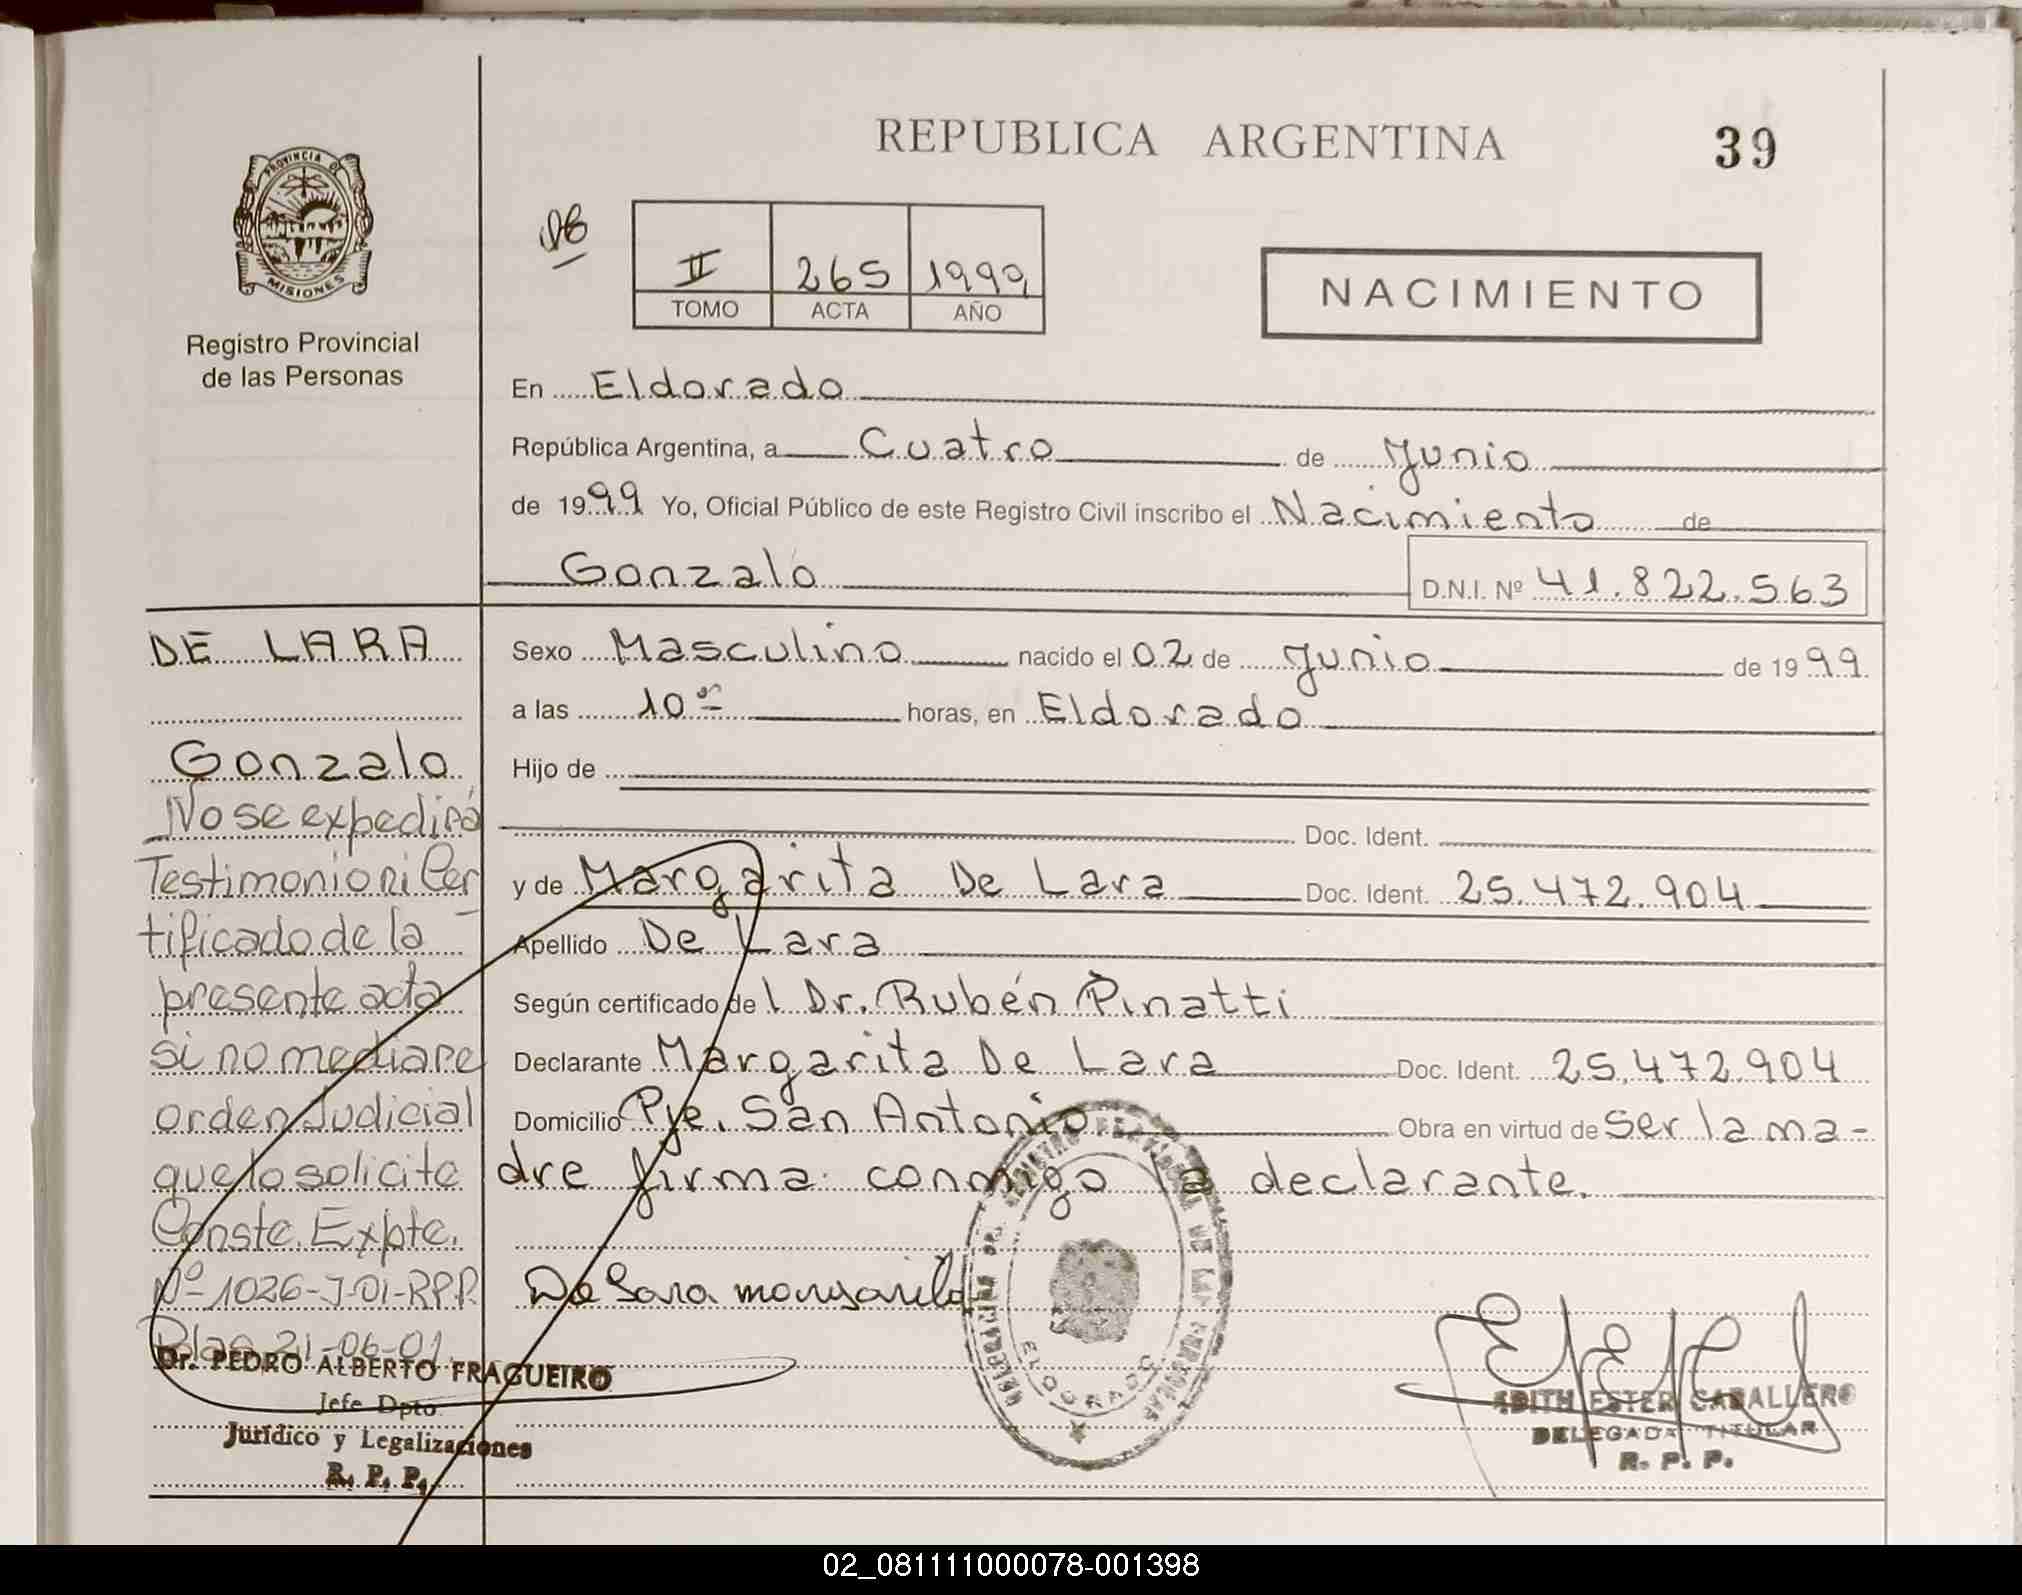 REPUBLICA ARGENTINA
39
PROVINCIA DE
MISIONES
Registro Provincial
de las Personas
II 265 1999
TOMO ACTA AÑO
NACIMIENTO
En Eldorado
República Argentina, a Cuatro de Junio
de 1999 Yo, Oficial Público de este Registro Civil inscribo el Nacimiento de
Gonzalo D.N.I. Nº 41.822.563
Sexo Masculino nacido el 02 de Junio de 1999
a las 10 horas, en Eldorado
Hijo de
Doc. Ident.
y de Margarita De Lara Doc. Ident. 25.472.904
Apellido De Lara
Según certificado de l Dr. Rubén Pinatti
Declarante Margarita De Lara Doc. Ident. 25.472.904
Domicilio Pje. San Antonio Obra en virtud de Ser la ma-
dre firma conmigo la declarante.
De Lara margarita
ELDORADO
EDITH ESTER CABALLERO
DELEGADA TITULAR
R. P. P.
DE LARA
Gonzalo
No se expedirá
Testimonio ni Cer
tificado de la
presente acta
si no mediare
orden Judicial
que lo solicite
Conste. Expte.
Nº 1026-J-01-RPP.
Pdas 21-06-01
Dr. PEDRO ALBERTO FRAGUEIRO
Jefe Dpto.
Jurídico y Legalizaciones
R. P. P.
02_081111000078-001398